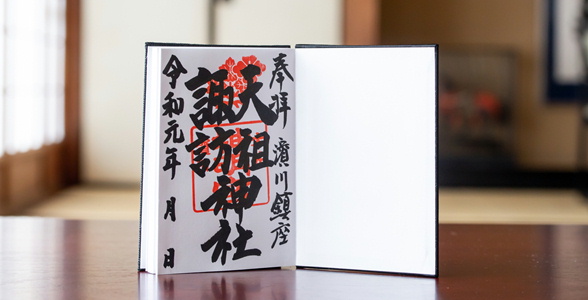 奉拝 濱川鎮座
天祖
諏訪
神社
令和元年 月 日